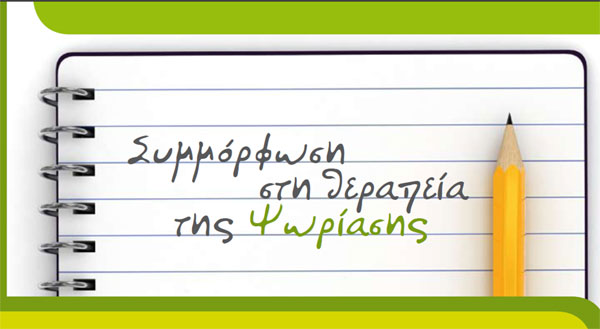 Συμμόρφωση
στη θεραπεία
της Ψωρίασης